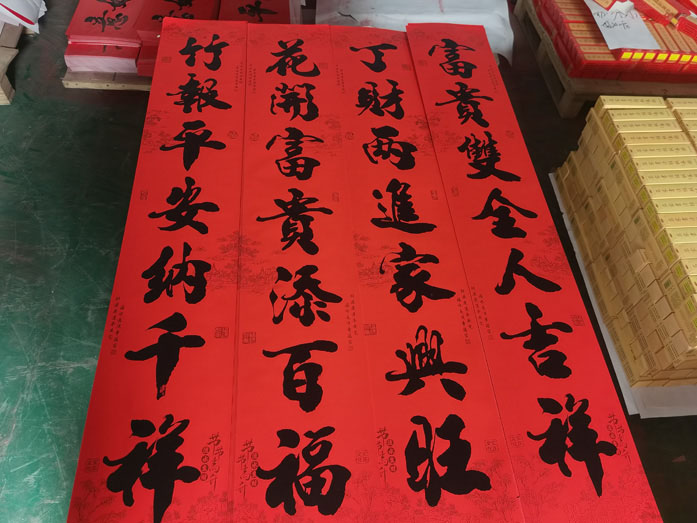 富貴雙全人吉祥
丁財两進家興旺
花開富貴添百福
竹報平安納千祥